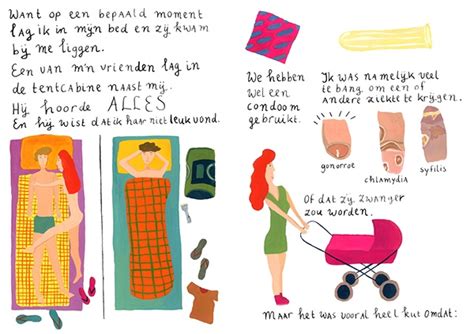 Want op een bepaald moment
lag ik in mijn bed en zij kwam
bij me liggen.
Een van m'n vrienden lag in
de tentcabine naast mij.
Hij hoorde ALLES
En hij wist dat ik haar niet leuk vond.
We hebben
wel een
condoom
gebruikt.
Ik was namelijk veel
te bang om een of
andere ziekte te krijgen.
gonorroe
chlamydia
syfilis
Of dat zij zwanger
zou worden.
Maar het was vooral heel kut omdat: